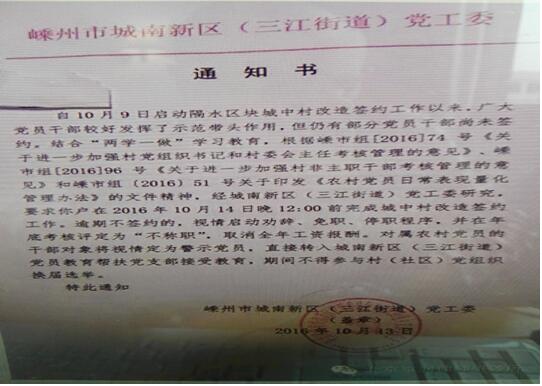 嵊州市城南新区（三江街道）党工委
通知书
自10月9日启动隔水区块城中村改造签约工作以来，广大
党员干部较好发挥了示范带头作用，但仍有部分党员干部尚未签
约。结合“两学一做”学习教育，根据嵊市组[2016]74号《关
于进一步加强村党组织书记和村委会主任考核管理的意见》、嵊
市组[2016]96号《关于进一步加强村非主职干部考核管理的意
见》和嵊市组（2016）51号关于印发《农村党员日常表现量化
管理办法》的文件精神，经城南新区（三江街道）党工委研究，
要求你户在2016年10月14日晚12:00前完成城中村改造签约
工作。逾期不签约的，视情启动劝辞、免职、停职程序，并在年
底考核评定为“不称职”，取消全年工资报酬。对属农村党员的
干部对象将视情定为警示党员，直接转入城南新区（三江街道）
党员教育帮扶党支部接受教育，期间不得参与村（社区）党组织
换届选举。
特此通知
嵊州市城南新区（三江街道）党工委
（盖章）
2016年10月13日